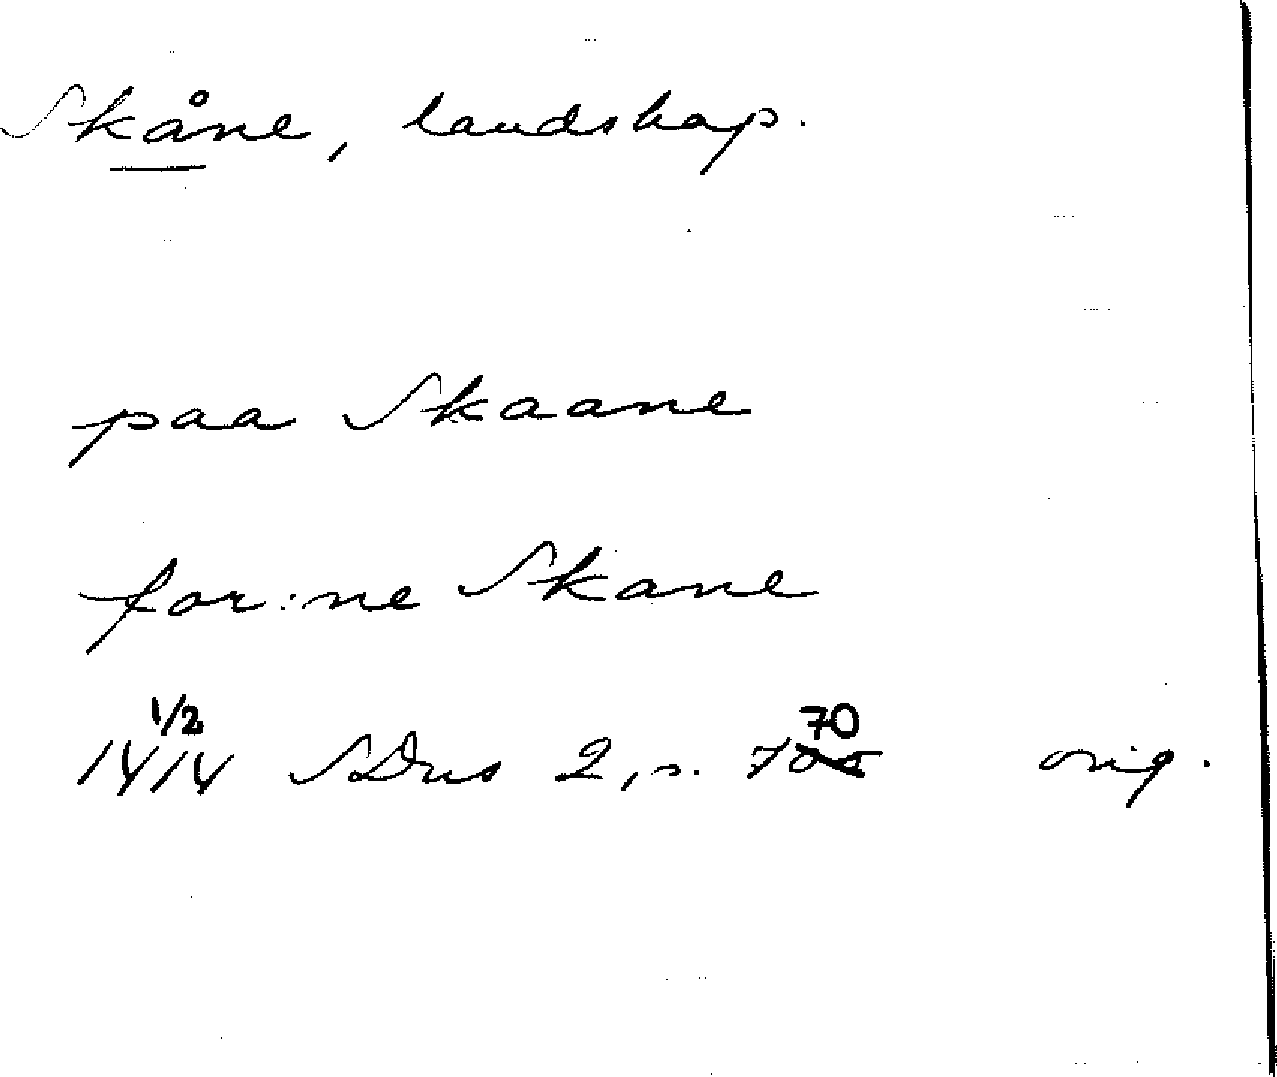 Skåne, landskap.
paa Skaane
for:ne Skane
1/2 70
1414 SDns 2, s. 7 orig.